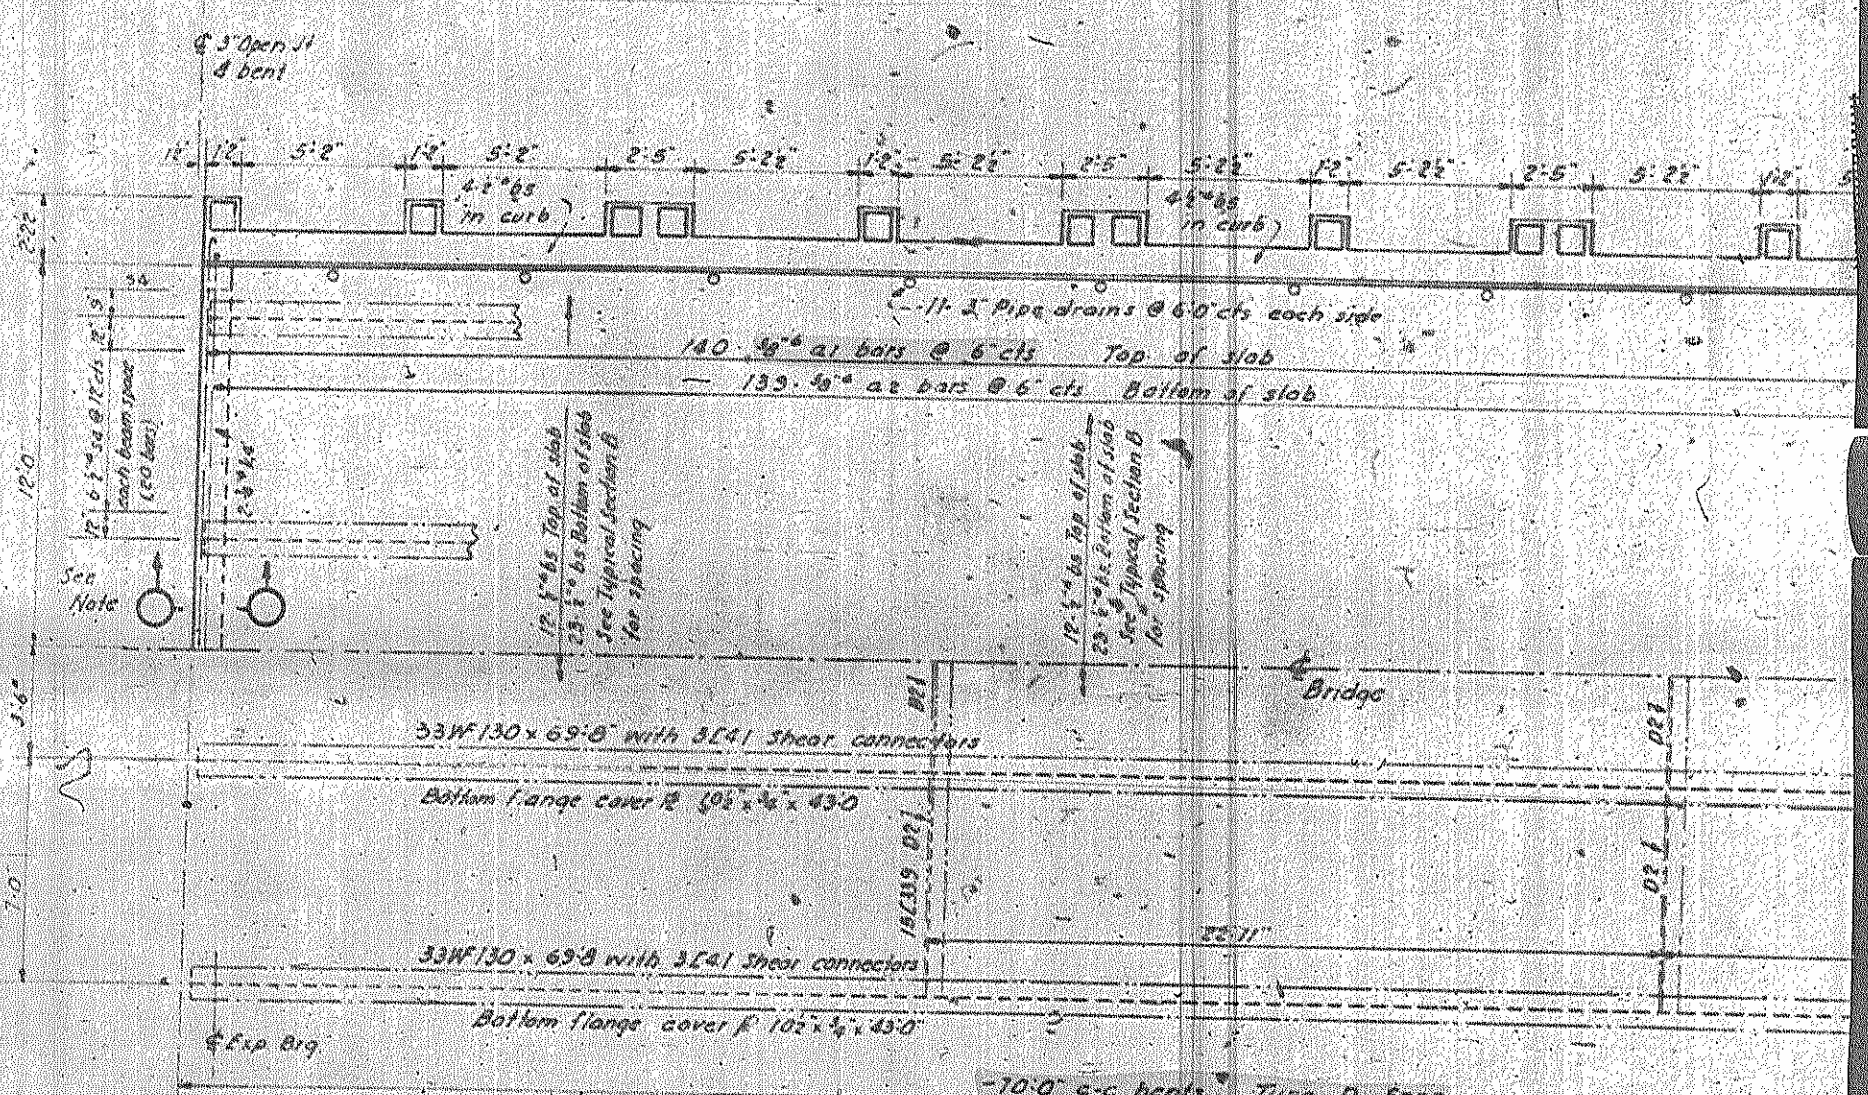 ℄ 3" Open Jt
& bent
1½" 1'-2" 5'-2" 1'-2" 5'-2" 2'-5" 5'-2½" 1'-2" 5'-2½" 2'-5" 5'-2½" 1'-2" 5'-2½" 2'-5" 5'-2½" 1'-2"
4-½"ᶲ b5
in curb
4-½"ᶲ b5
in curb
11-2" Pipe drains @ 6'-0" cts each side
140-⅝"ᶲ a1 bars @ 6" cts Top of slab
139-⅝"ᶲ a2 bars @ 6" cts Bottom of slab
12'-0
12" 6 ½"ᶲ s4 @ 12 cts 12" 9
each beam space
(20 bars)
12-½"ᶲ b5 Top of slab
23-½"ᶲ b5 Bottom of slab
See Typical Section B
for spacing
12-½"ᶲ b5 Top of slab
23-½"ᶲ b5 Bottom of slab
See Typical Section B
for spacing
See
Note
3'-6"
D21
℄
Bridge
33WF130 x 69'-8" with 3[41 Shear connectors
Bottom flange cover ℄ 10½" x ¾" x 43'-0
15[339 D21
7'-0
22'-11"
33WF130 x 69'-8 with 3[41 Shear connectors
Bottom flange cover ℄ 10½" x ¾" x 43'-0"
℄ Exp Brg
70'-0" c-c bents